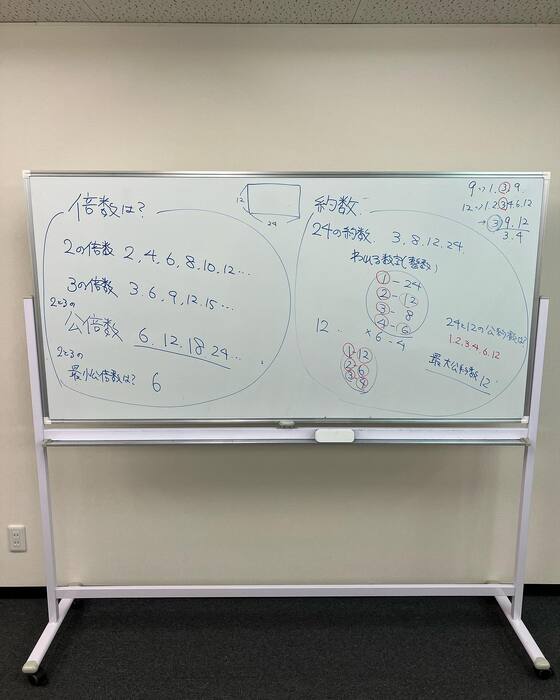 倍数は?
2の倍数 2, 4, 6, 8, 10, 12...
3の倍数 3, 6, 9, 12, 15...
2と3の
公倍数 6. 12. 18 24...
2と3の
最小公倍数は? 6
12
24
約数
24の約数 3, 8, 12, 24.
わりきる数字(整数)
1-24
2-12
3-8
4-6
×6-4
12..
1-12
2 6
3 4
9 → 1. 3 9.
12 → 1. 2 3 4. 6. 12
→ 3) 9. 12
3. 4
24と12の公約数は?
1. 2. 3. 4. 6. 12
最大公約数 12